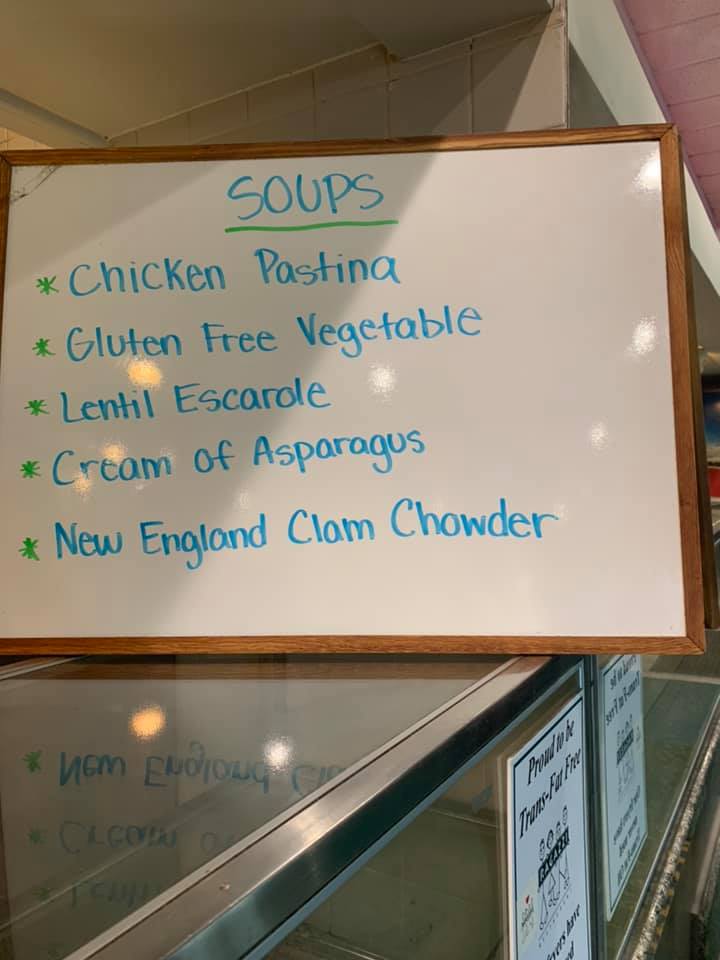 SOUPS
* Chicken Pastina
* Gluten Free Vegetable
* Lentil Escarole
* Cream of Asparagus
* New England Clam Chowder
Proud to be
Trans-Fat Free